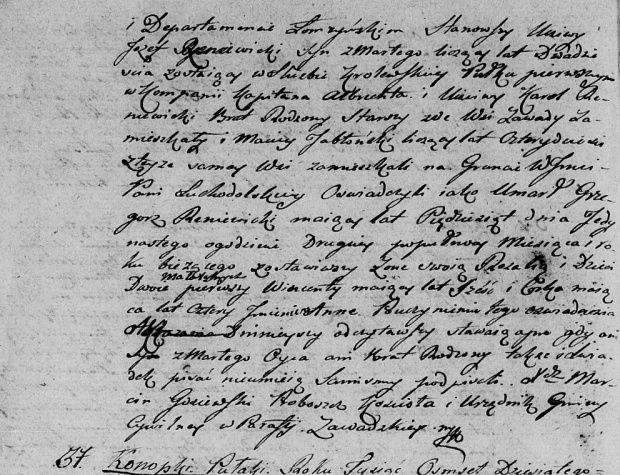 i Departamencie Łomżyńskim Stanowszy Uczciwy
Józef Reniewicki Syn zMarłego liczący lat Dwadzie
scia zostaiący w słuzbie Krolewskiey Pułku pierwszym
w Kompanii Kapitana Albrechta i Uczciwy Karol Re
niewicki Brat Rodzony Starszy we Wsi Zawady Za
mieszkały i Maciey Jabłoński liczący lat Czterydziesci
z teyze samey Wsi zamieszkali na Gruncie W
Pani Suchodolskiey Oswiadczyli iako Umarł Grze
gorz Reniewicki maiący lat Pięćdziesiąt dnia Jedy
nastego o godzinie Drugiey popołudniu Miesiąca i ro
ku bieżącego zostawiwszy Zonę swoią Rozalią i Dzieci
Małoletnych
Dwoie pierwszy Wincenty maiący lat Szesć i Corka maią
ca lat Cztery Imieniem Anne. Po uczynieniu tego oswiadczenia
Ninieyszy odczytawszy stawaiącym gdy ani
Syn zMarłego Oyca ani Brat Rodzony takze i Swia
dek pisać nieumieią Samismy podpisali. Xdz Mar
cin Gosiewski Proboszcz Kościoła i Urzędnik Gminy
Cywilney w Parafij Zawadzkiey
37. Konopki Pułazki. Roku Tysiąc Osmset Dziewiątego